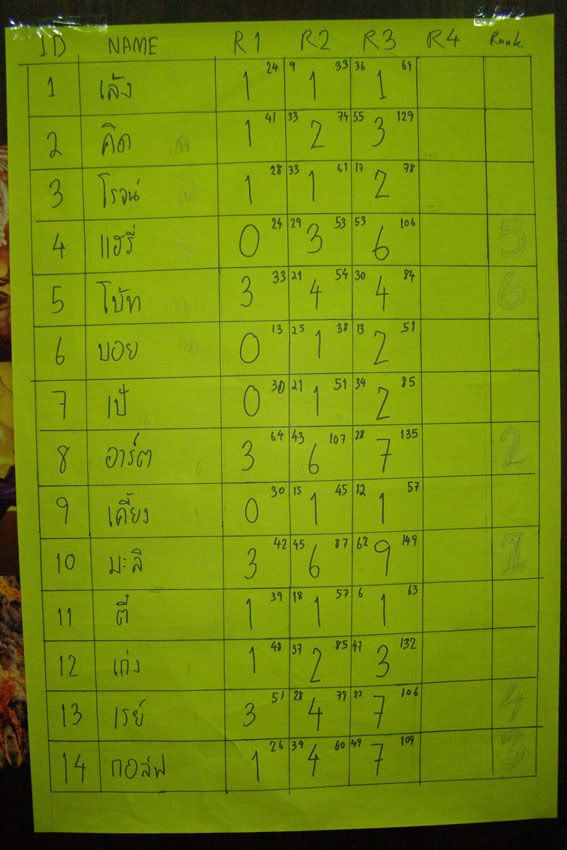 ID NAME R1 R2 R3 R4 Rank.
1 เล้ง 1 24 9 1 33 36 1 69
2 คิด 1 41 33 2 74 55 3 129
3 โรจน์ 1 28 33 1 61 17 2 78
4 แฮรี่ 0 24 29 3 53 53 6 106 5
5 โบ้ท 3 33 21 4 54 30 4 84 6
6 บอย 0 13 25 1 38 13 2 51
7 เป้ 0 30 21 1 51 34 2 85
8 อาร์ต 3 64 43 6 107 28 7 135 2
9 เคี้ยง 0 30 15 1 45 12 1 57
10 มะลิ 3 42 45 6 87 62 9 149 1
11 ตี๋ 1 39 18 1 57 6 1 63
12 เก่ง 1 48 37 2 85 47 3 132
13 เรย์ 3 51 28 4 79 27 7 106 4
14 กอล์ฟ 1 26 34 4 60 49 7 109 3